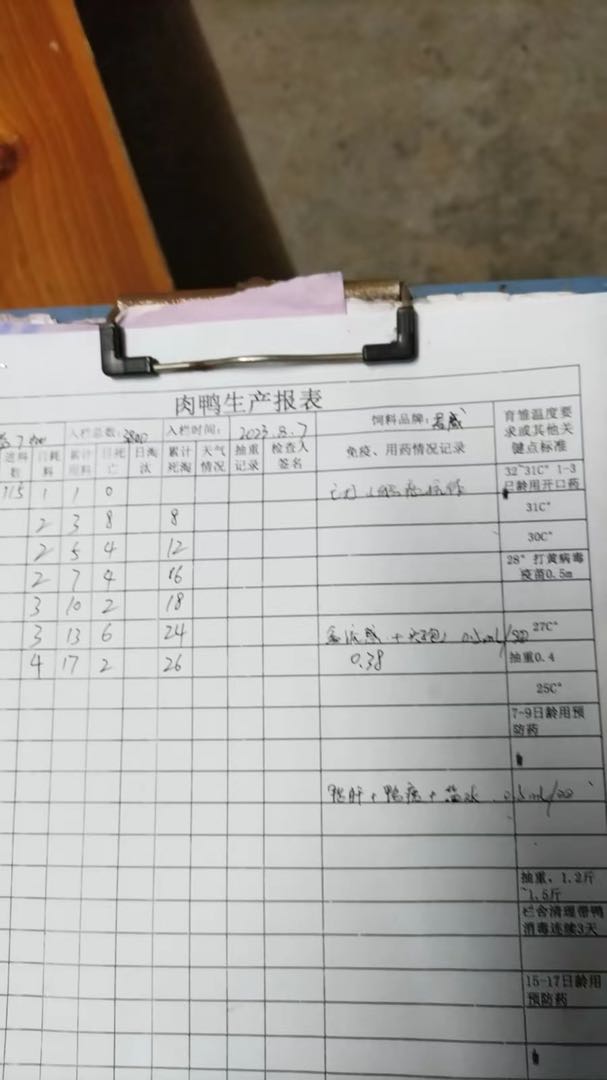 肉鸭生产报表
入栏总数: 3800 入栏时间: 2023.8.7 饲料品牌: 育雏温度要求或其他关键点标准
进料数 日耗料 累计用料 日死亡 日淘汰 累计死淘 天气情况 抽重记录 检查人签名 免疫、用药情况记录
115 1 1 0 32~31C° 1-3日龄用开口药
2 3 8 8 31C°
2 5 4 12 30C°
2 7 4 16 28° 打黄病毒疫苗0.5m
3 10 2 18
3 13 6 24 + 0.5mL/只 27C°
4 17 2 26 0.38 抽重0.4
25C°
7-9日龄用预防药
鸭肝+鸭瘟+ 0.5mL/只
抽重，1.2斤~1.5斤
栏舍清理带鸭消毒连续3天
15-17日龄用预防药